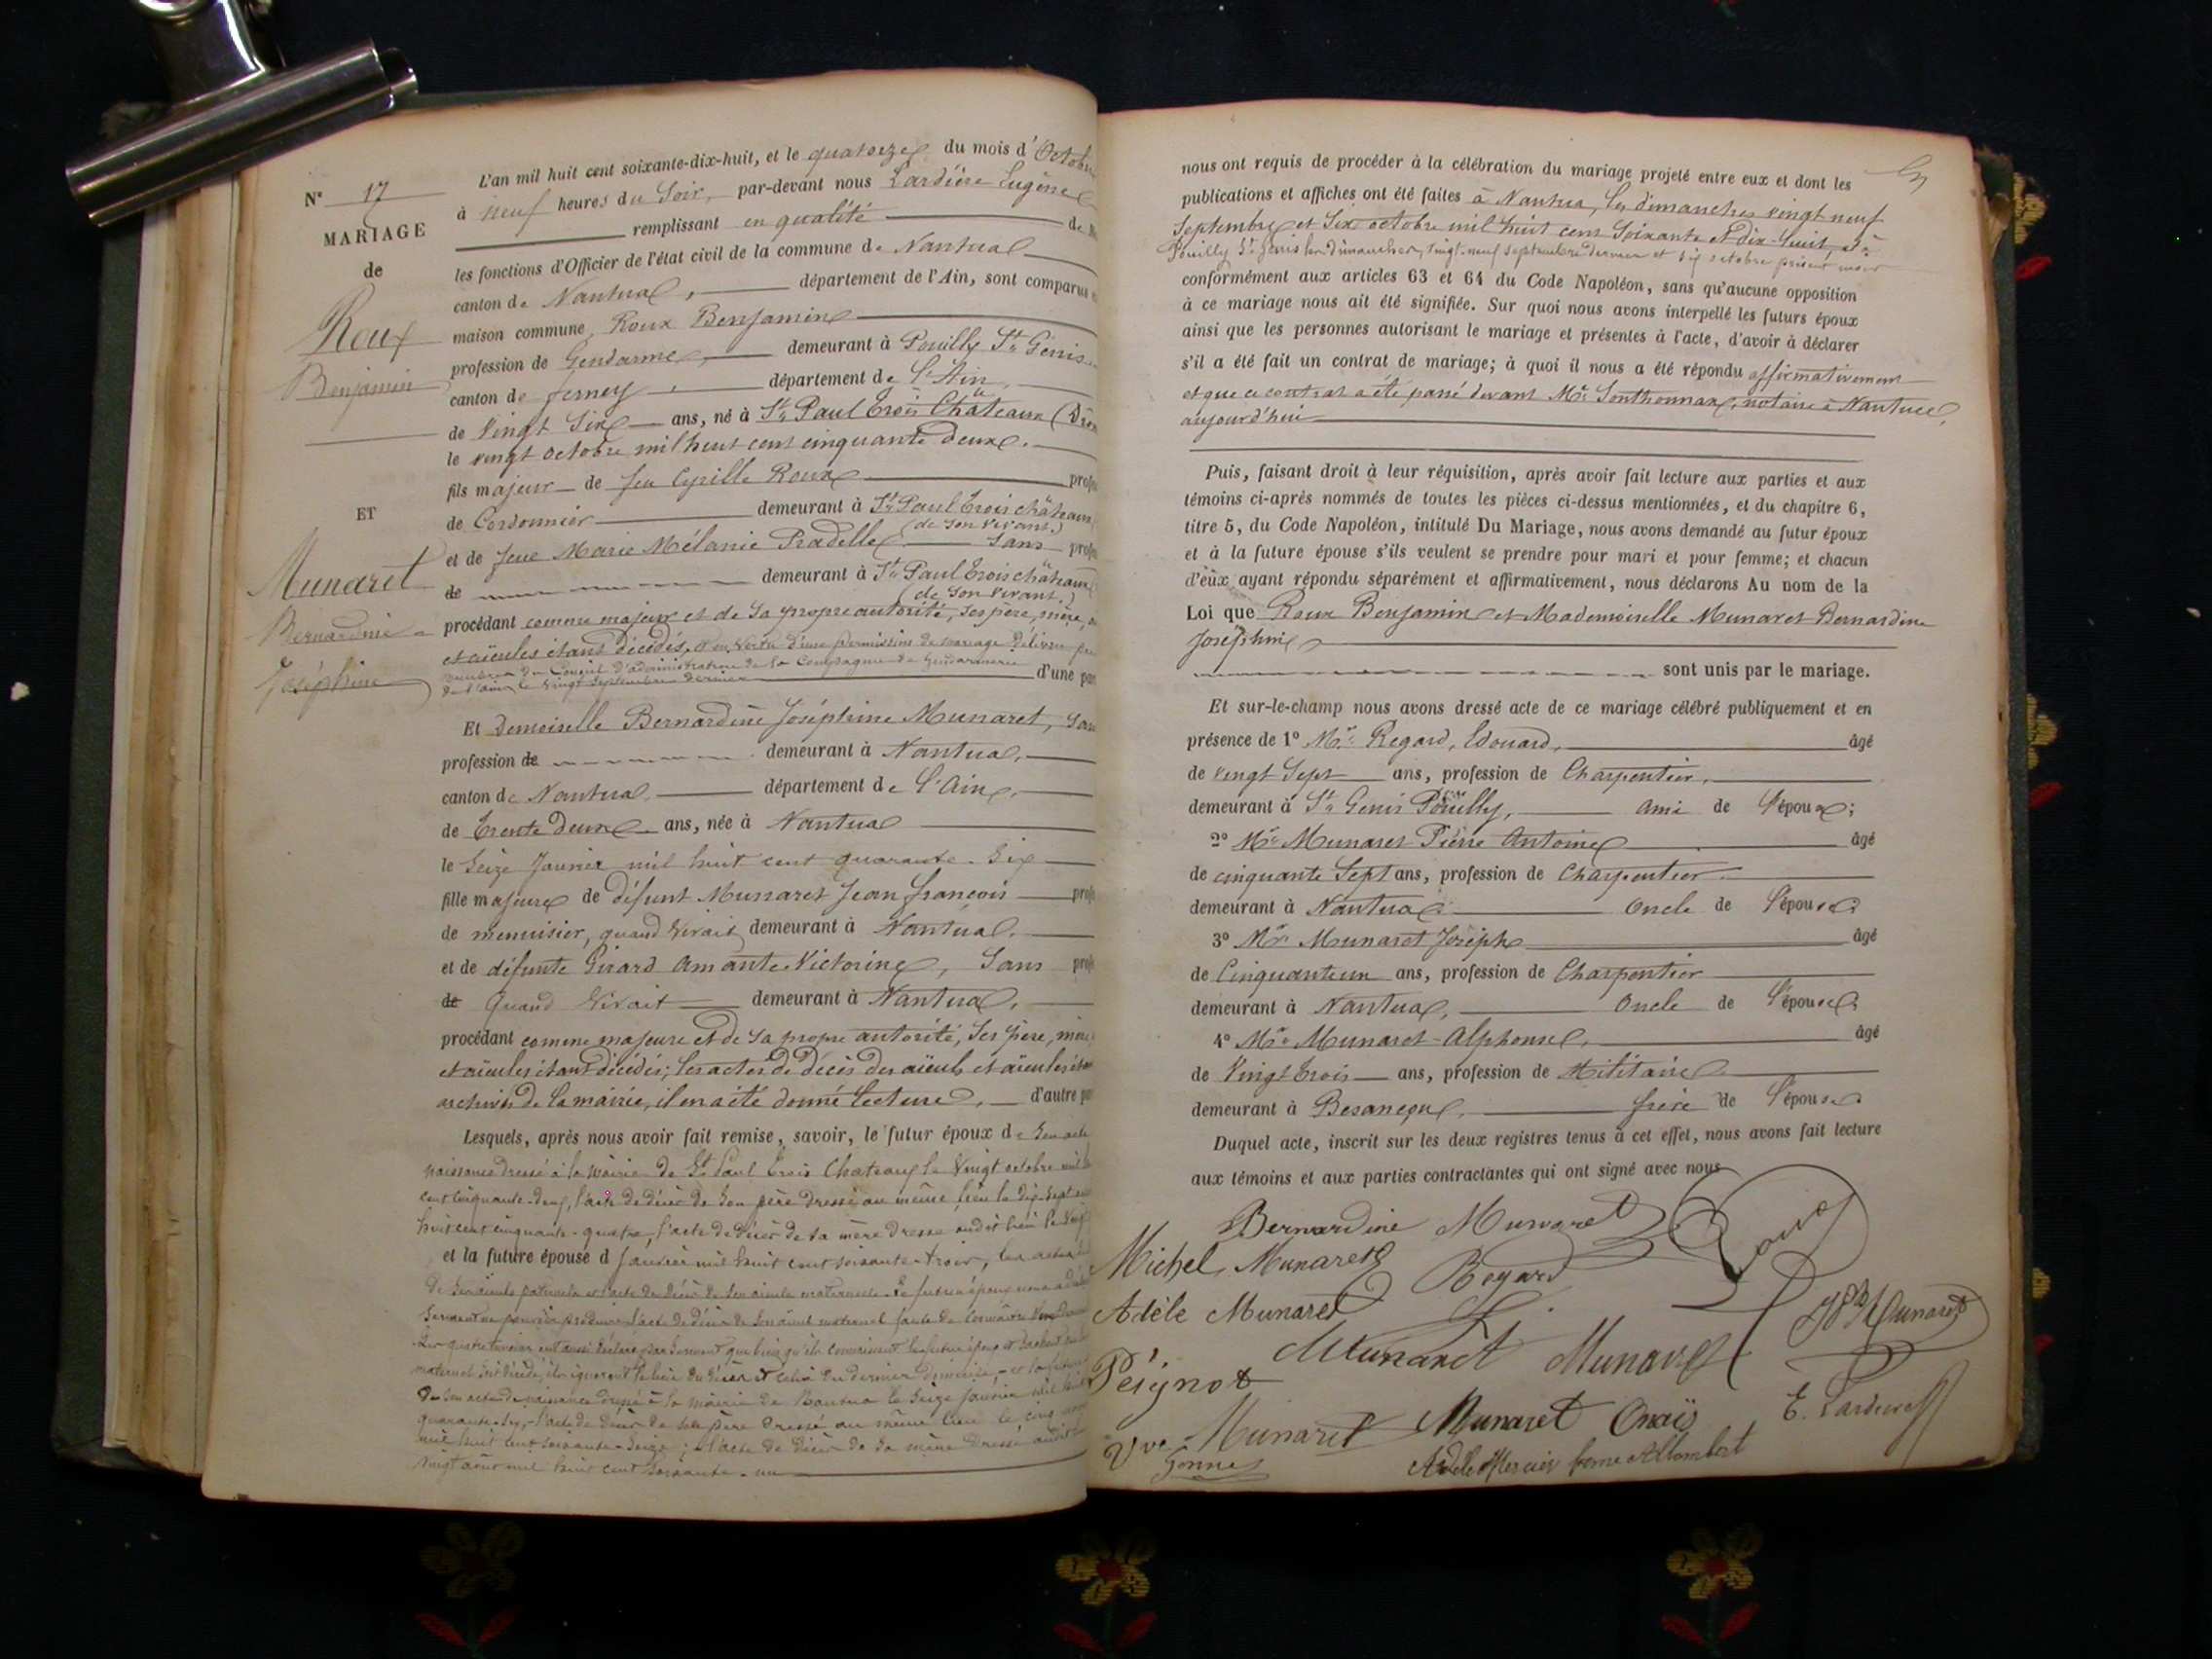 N° 17
MARIAGE
de
Roux
Benjamin
ET
Munaret
Bernardine
Joséphine
L'an mil huit cent soixante-dix-huit, et le quatorze du mois d'Octobre
à neuf heures du Soir, par-devant nous Lardière Eugène
remplissant en qualité de
les fonctions d'Officier de l'état civil de la commune de Nantua
canton de Nantua, département de l'Ain, sont comparus
maison commune, Roux Benjamin
profession de Gendarme, demeurant à Pouilly St Genis
canton de ferney, département de l'Ain,
de Vingt Six ans, né à St Paul Trois Châteaux
le vingt octobre mil huit cent cinquante deux.
fils majeur de feu Cyrille Roux
de Cordonnier demeurant à St Paul Trois châteaux
(de son vivant)
et de feue Marie Mélanie Pradelle Sans
de demeurant à St Paul Trois châteaux
(de son vivant)
procédant comme majeur et de sa propre autorité, ses père, mère,
et aïeules étant décédés, et en vertu d'une permission de mariage délivrée
membres du Conseil d'administration de la Compagnie de Gendarmerie
de l'ain, le vingt septembre dernier d'une
Et Demoiselle Bernardine Joséphine Munaret,
profession de demeurant à Nantua,
canton de Nantua département de L'Ain,
de Trente Deux ans, née à Nantua
le Seize Janvier mil huit cent quarante-Six
fille majeure de défunt Munaret Jean françois
de menuisier, quand vivait, demeurant à Nantua.
et de défunte Girard Amante Victorine, Sans
de Quand Vivait demeurant à Nantua,
procédant comme majeure et de sa propre autorité, ses père, mère
et aïeules étant décédés; les actes de décès des aïeuls et aïeules
archives de la mairie, il en a été donné lecture, d'autre
Lesquels, après nous avoir fait remise, savoir, le futur époux de Son acte
naissance dressé à la mairie de St Paul Trois Chateaux le Vingt octobre mil
cent cinquante-deux, l'acte de décès de son père dressé au même lieu le dix-sept
huit cent cinquante-quatre, l'acte de décès de sa mère dressé audit lieu le
et la future épouse d Janvier mil huit cent soixante-trois, les actes
maternel soit décédé, ils ignorent le lieu du décès et celui du dernier domicile,
de son acte de naissance dressé à la mairie de Nantua le Seize Janvier mil huit
quarante-six, l'acte de décès de son père dressé au même lieu le cinq
mil huit cent soixante-seize; l'acte de décès de sa mère dressé audit
vingt août mil huit cent soixante-un
nous ont requis de procéder à la célébration du mariage projeté entre eux et dont les
publications et affiches ont été faites à Nantua, les dimanches vingt neuf
Septembre et Six octobre mil huit cent Soixante et dix-huit, et à
Pouilly St Genis les dimanches, vingt-neuf septembre dernier et six octobre présent mois
conformément aux articles 63 et 64 du Code Napoléon, sans qu'aucune opposition
à ce mariage nous ait été signifiée. Sur quoi nous avons interpellé les futurs époux
ainsi que les personnes autorisant le mariage et présentes à l'acte, d'avoir à déclarer
s'il a été fait un contrat de mariage; à quoi il nous a été répondu affirmativement
et que ce contrat a été passé devant Mr Sonthonnax, notaire à Nantua
aujourd'hui
Puis, faisant droit à leur réquisition, après avoir fait lecture aux parties et aux
témoins ci-après nommés de toutes les pièces ci-dessus mentionnées, et du chapitre 6,
titre 5, du Code Napoléon, intitulé Du Mariage, nous avons demandé au futur époux
et à la future épouse s'ils veulent se prendre pour mari et pour femme; et chacun
d'eux ayant répondu séparément et affirmativement, nous déclarons Au nom de la
Loi que Roux Benjamin et Mademoiselle Munaret Bernardine
Joséphine
sont unis par le mariage.
Et sur-le-champ nous avons dressé acte de ce mariage célébré publiquement et en
présence de 1° Mr Regard, Edouard, âgé
de vingt Sept ans, profession de Charpentier,
demeurant à St Genis Pouilly, ami de l'époux;
2° Mr Munaret Pierre Antoine âgé
de cinquante Sept ans, profession de Charpentier
demeurant à Nantua Oncle de l'épouse
3° Mr Munaret Joseph âgé
de Cinquante un ans, profession de Charpentier
demeurant à Nantua, Oncle de l'épouse
4° Mr Munaret Alphonse, âgé
de Vingt Trois ans, profession de Militaire
demeurant à Besançon, frère de l'épouse
Duquel acte, inscrit sur les deux registres tenus à cet effet, nous avons fait lecture
aux témoins et aux parties contractantes qui ont signé avec nous
Bernardine Munaret Roux
Michel Munaret Regard
Adèle Munaret Munaret
Munaret Munaret
Peignot
E. Lardière
Vve Munaret Munaret Onaïs
Gonne
Adèle Mercier femme Allombert